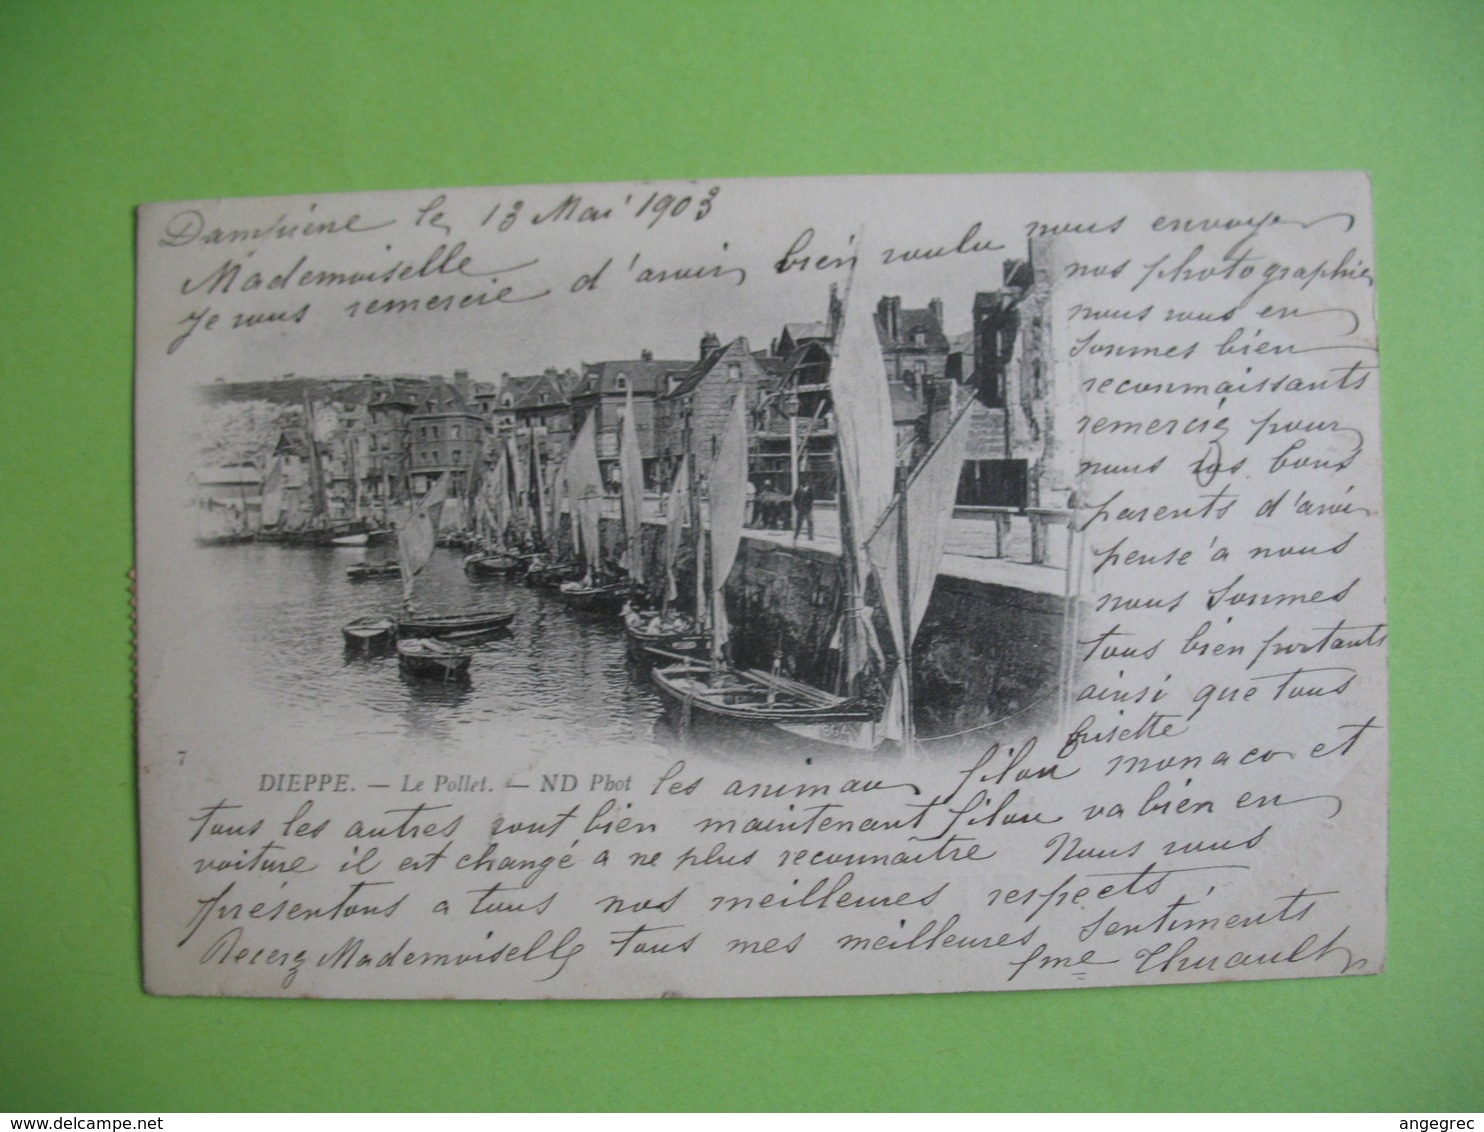 Dampiène le 13 Mai 1903
Mademoiselle
Je vous remercie d'avoir bien voulu nous envoyer
nos photographie
nous vous en
sommes bien
reconnaissants
remerciez pour
nous vos bons
parents d'avoir
pensé à nous
nous sommes
tous bien portants
ainsi que tous
frisette
7
DIEPPE. — Le Pollet. — ND Phot
les animau filou monaco et
tous les autres vont bien maintenant filou va bien en
voiture il est changé a ne plus reconnaître Nous vous
présentons a tous nos meilleures respects
Recerez Mademoiselle tous mes meilleures sentiments
fme Thurault
www.delcampe.net
angegrec